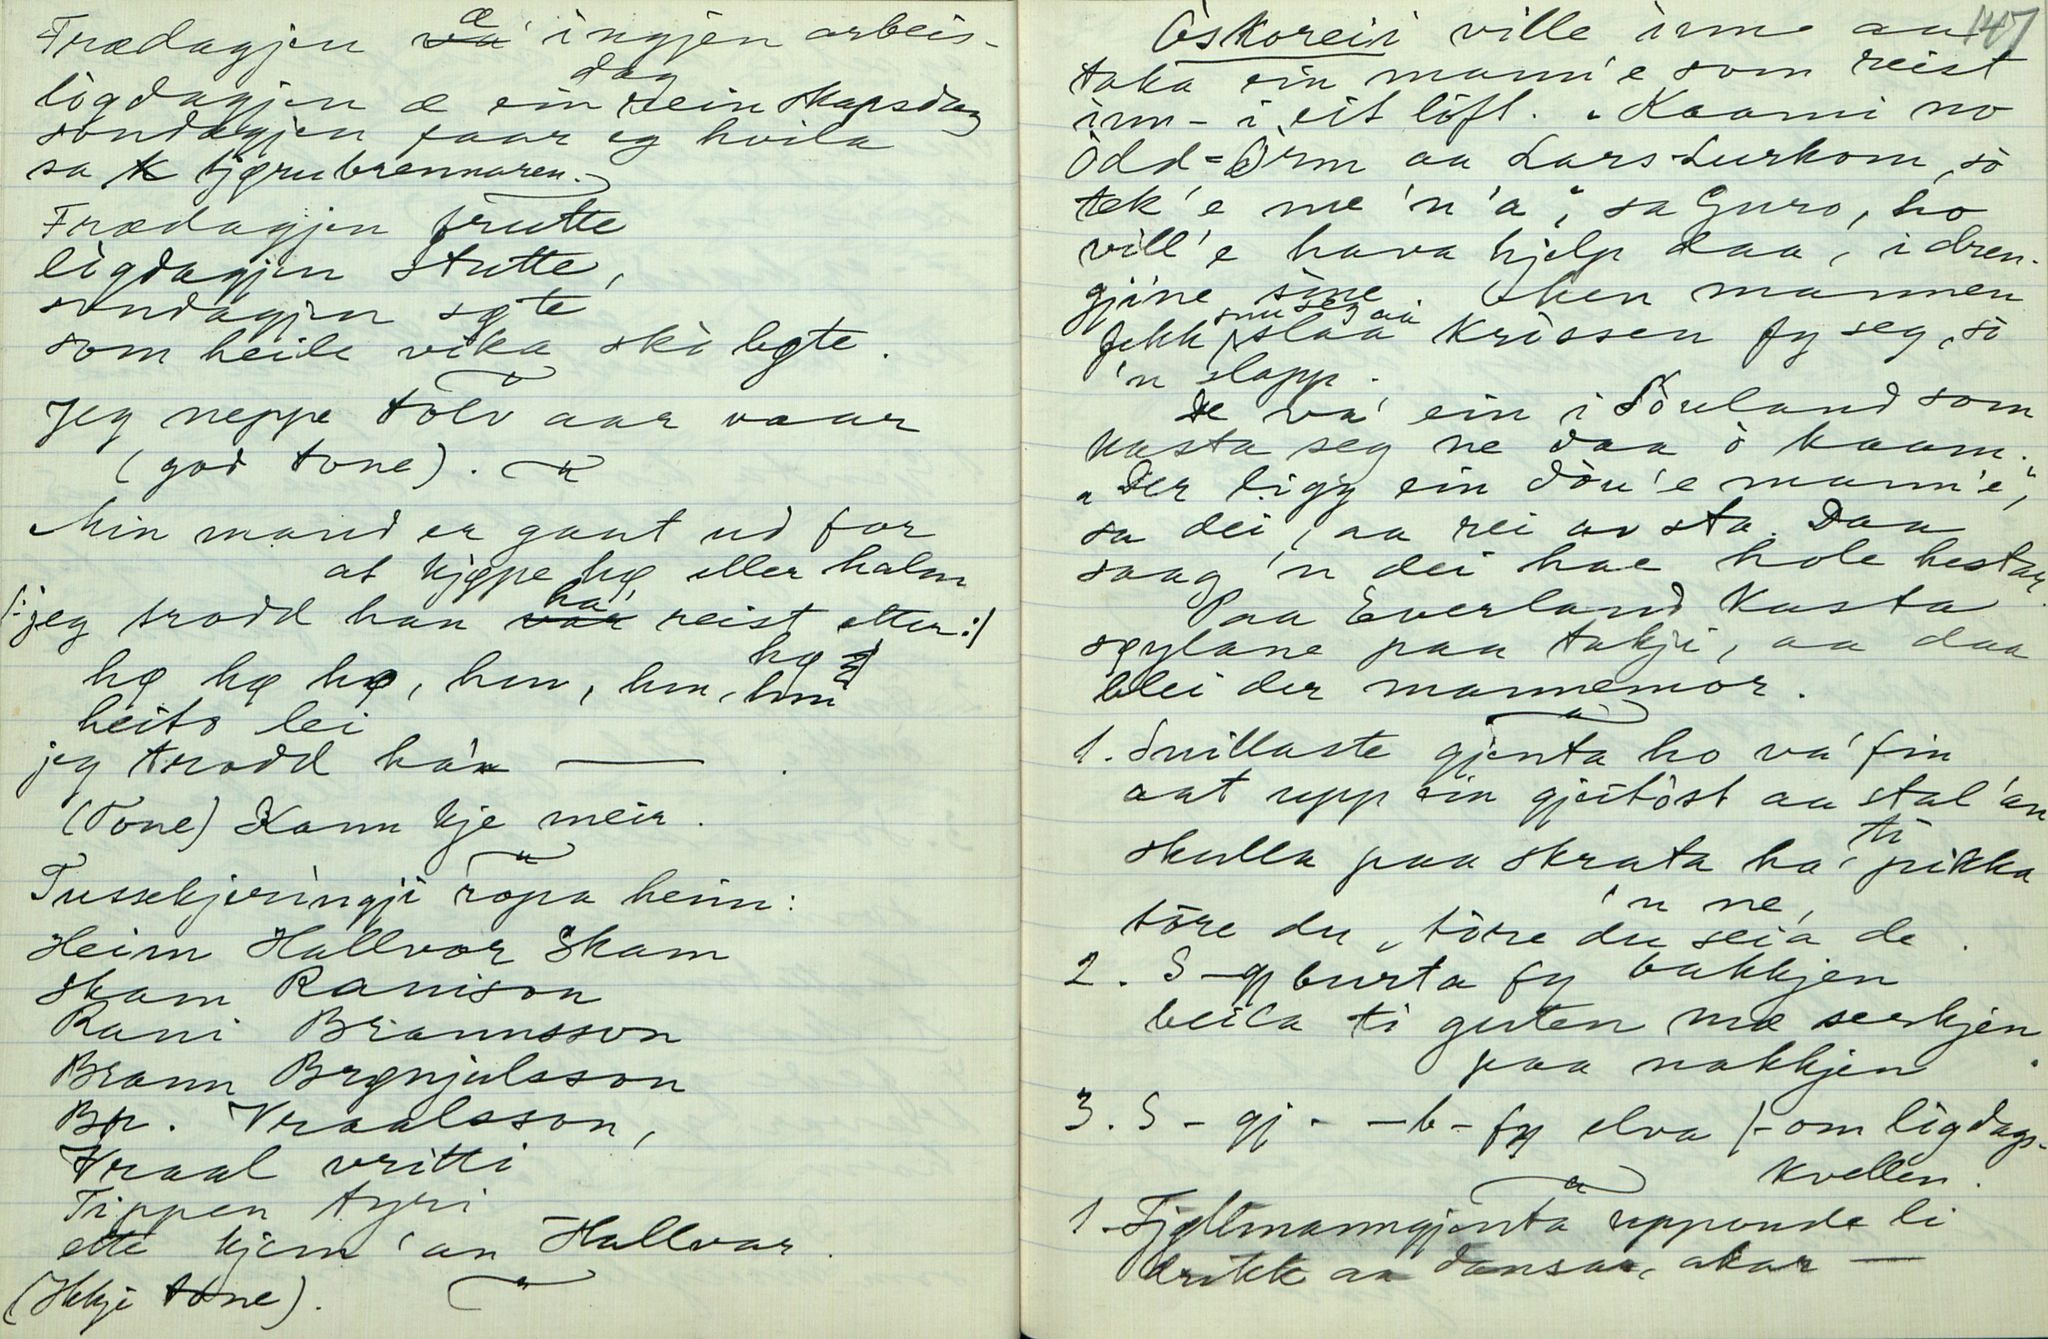 Frædagjen æ ingjen arbeis-
lögdagjen æ ein rein skapsdag
söndagjen faar eg hvila
sa tjørubrennaren.
Frædagjen frutte
lögdagjen stutte,
söndagjen søte
som heile vika ski bøte.
Jeg neppe tolv aar vaar
(god tone).
Min mand er gaat ud for
at kjøpe hø eller halm
/:jeg trodd han ha' reist etter:/
hø hø hø, hm, hm, hm hø
heito lei
jeg trodd ha'n —
(Tone) Kann kje meir.
Tussekjeringji röpa heim:
Heim Hallvor Skam
skam Ranison
Rani Brannsson
Brann Brønjulsson
Br. Vraalsson,
Vraal vritti
Tippen tyri
ette kjem 'an Hallvar.
(Ikkje tone).
147
Öskoreii ville inn aa
taka ein mann'e som reist
inn i eit löft. "Kaami no
Ödd-Örm aa Lars-Lurkom, so
tek 'e me 'n 'a", sa Guro, ho
vill'e hava hjelp daa, i dren-
gjine sine. Men mannen
fekk snu seg aa slaa krossen fy seg, so
'n slapp.
De va' ein i Söuland som
kasta seg ne daa ö kaam.
"Der ligg ein döu'e mann'e",
sa dei, aa rei av sta. Daa
saag 'n dei hae hole hestar.
Paa Everland kasta
søylane paa takji, aa daa
blei der mannemor.
1. Snillaste gjenta ho va' fin
aat upp ein gjeitöst aa stal 'an
skulla paa skrata ha' ti pikka
'n ne,
töre du, töre du seia de.
2. S - gj burta fy bakkjen
beila ti guten mæ serkjen
paa nakkjen.
3. S - gj - - b - fy elva /- om lögdags-
kvellen.
1. Fjellmanngjenta uppunde li
drikk aa dansar, akar —